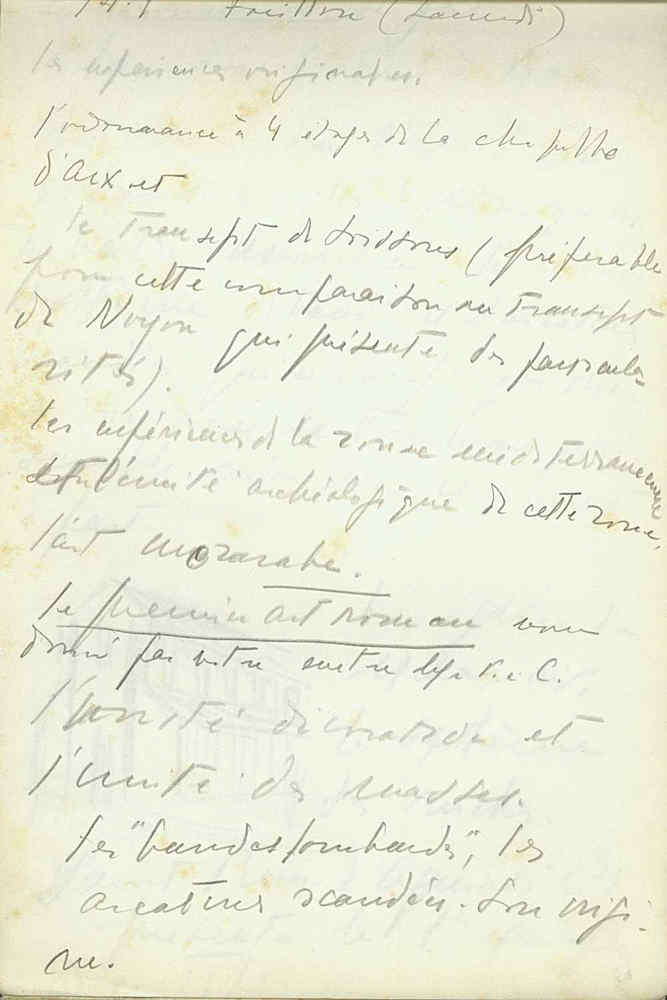 Focillon (Lauredi)
Les expériences originales.
l'ordonnance à 4 étages de la chapelle
d'Aix et
le transept de Soissons (préférable
pour cette comparaison au transept
de Noyon qui présente des particula-
rités).
Les expériences de la zone méditerranéenne
et l'unité archéologique de cette zone,
l'art mozarabe.
le premier art roman nous
donné par notre maître
l'unité décorative et
l'unité des masses.
Les "bandes lombardes", les
arcatures scandées. Son origi-
ne.